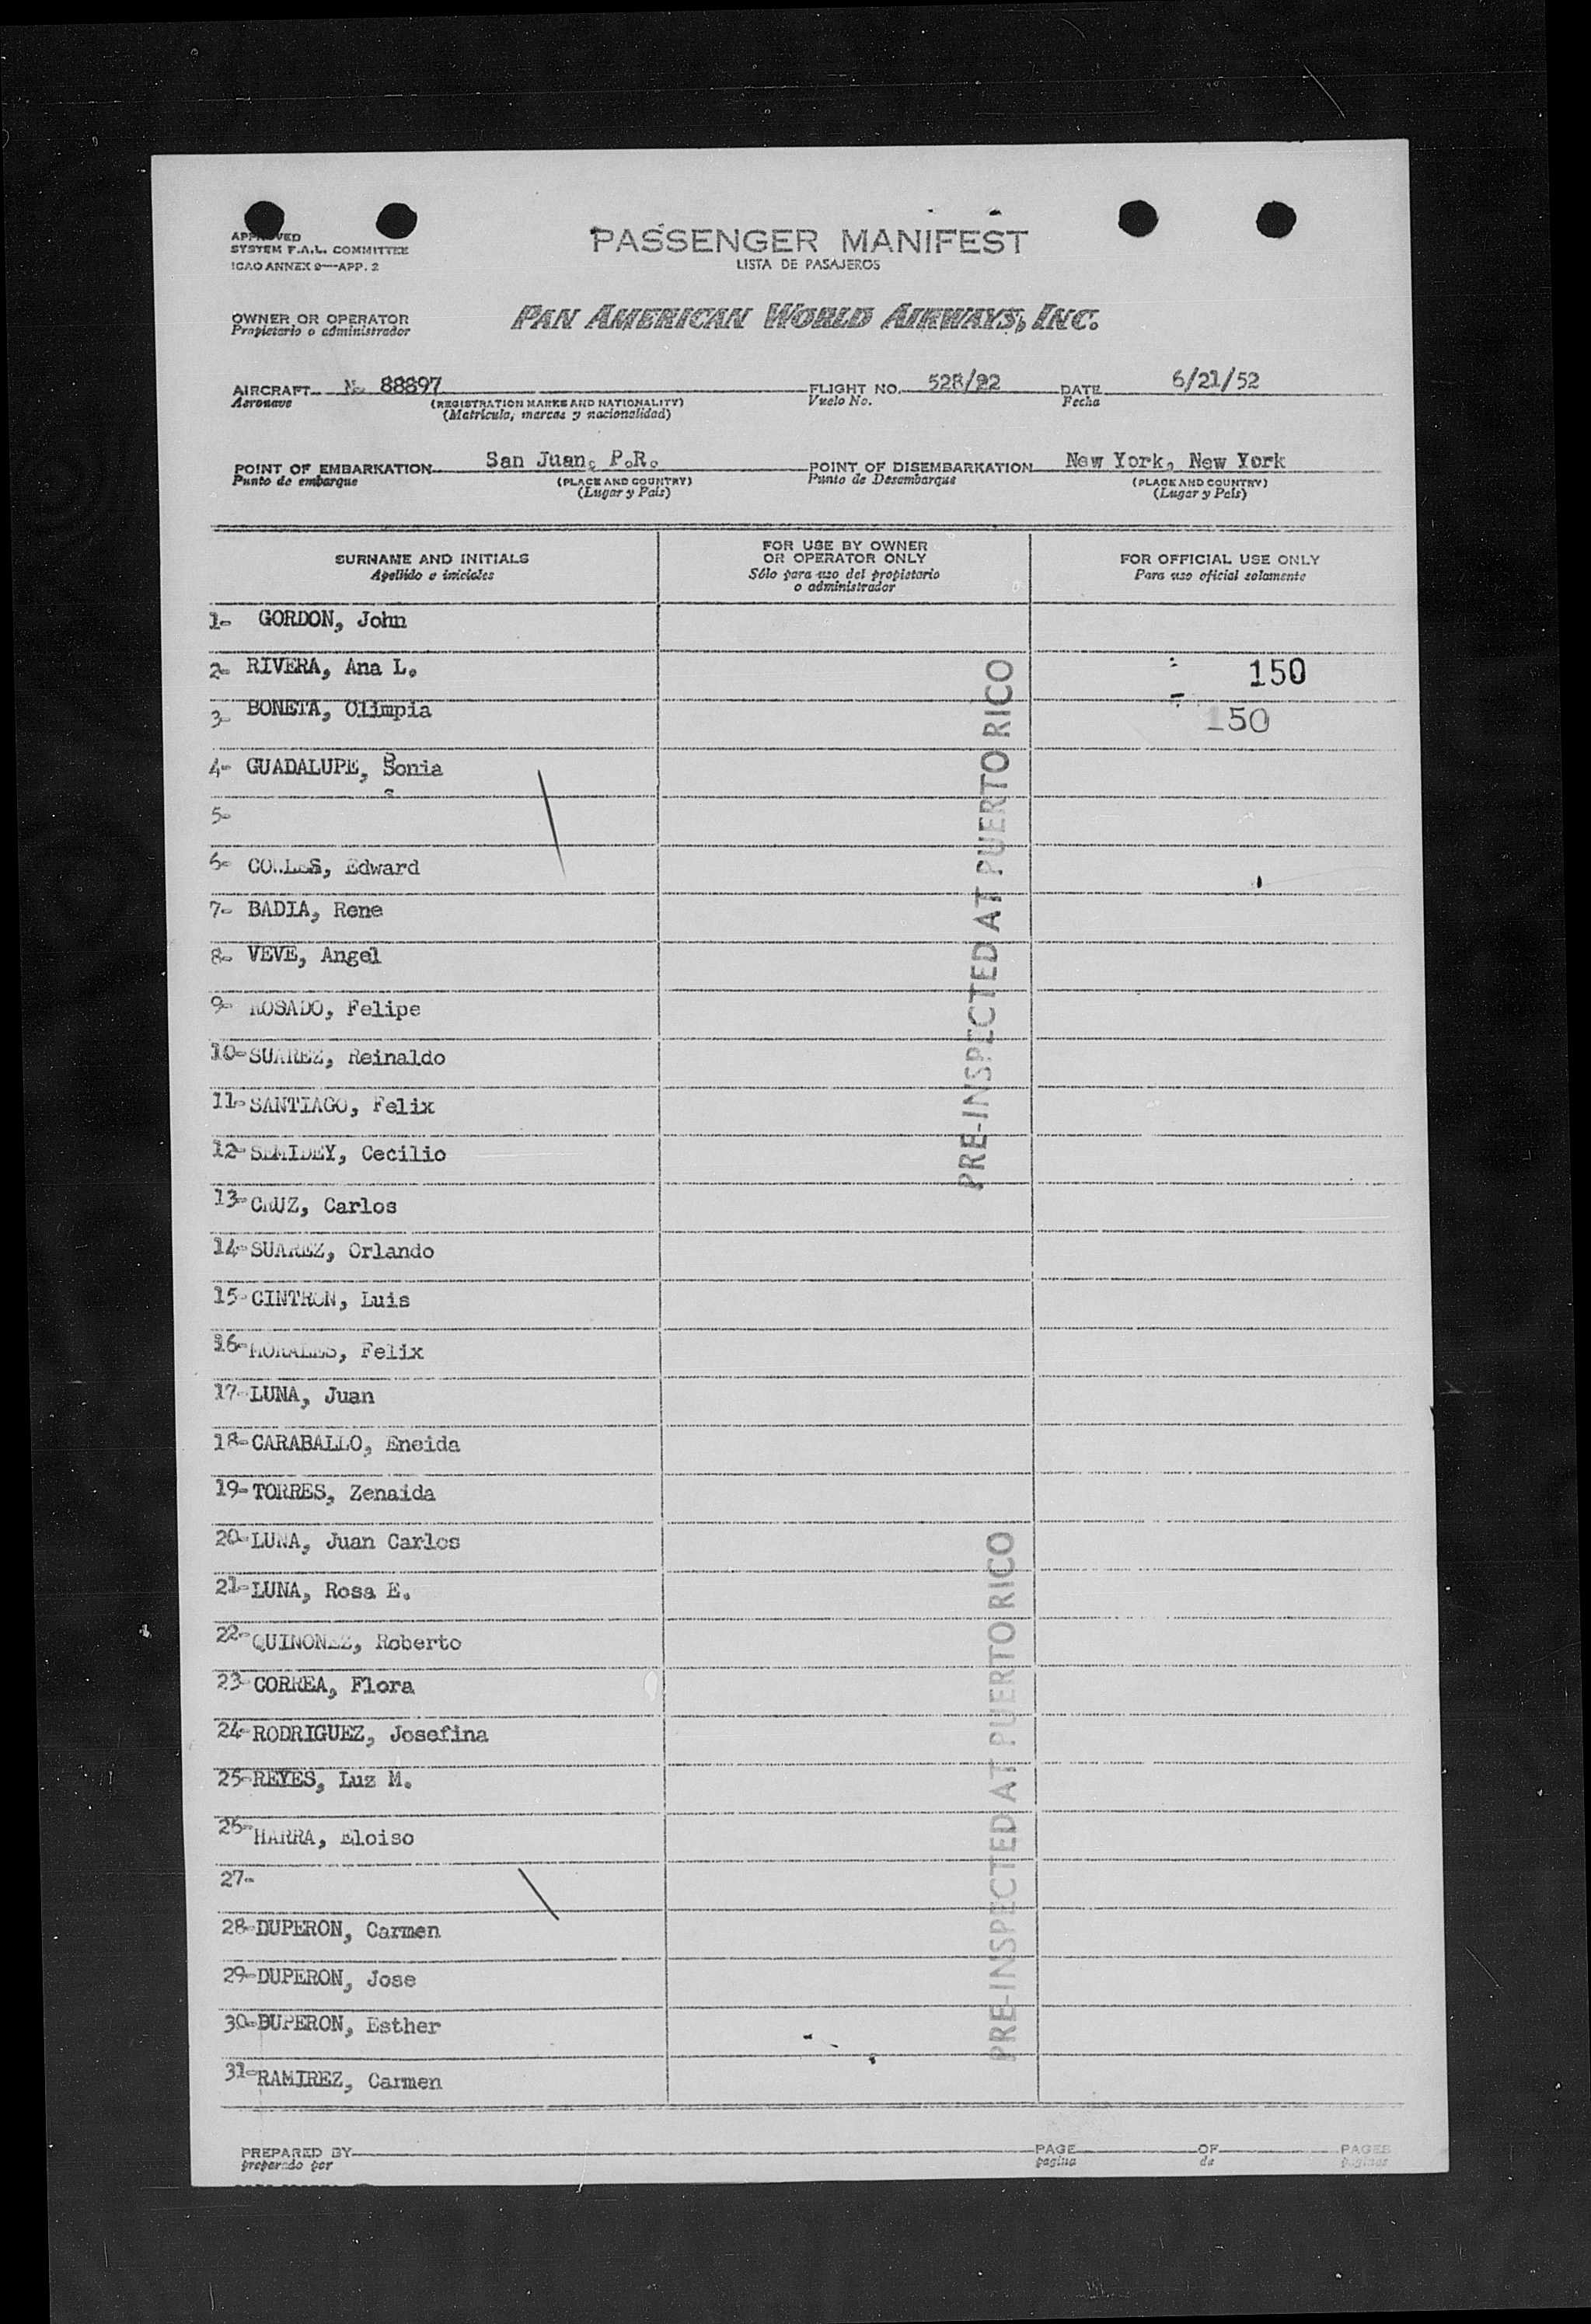 APPROVED
SYSTEM F.A.L. COMMITTEE
ICAO ANNEX 9—APP. 2
PASSENGER MANIFEST
LISTA DE PASAJEROS
OWNER OR OPERATOR
Propietario o administrador
PAN AMERICAN WORLD AIRWAYS, INC.
AIRCRAFT N. 88897 FLIGHT NO. 528/22 DATE 6/21/52
Aeronave (REGISTRATION MARKS AND NATIONALITY) Vuelo No. Fecha
(Matrícula, marcas y nacionalidad)
POINT OF EMBARKATION San Juan, P.R. POINT OF DISEMBARKATION New York, New York
Punto de embarque (PLACE AND COUNTRY) Punto de Desembarque (PLACE AND COUNTRY)
(Lugar y País) (Lugar y País)
SURNAME AND INITIALS
Apellido e iniciales
FOR USE BY OWNER
OR OPERATOR ONLY
Sólo para uso del propietario
o administrador
FOR OFFICIAL USE ONLY
Para uso oficial solamente
1- GORDON, John
2- RIVERA, Ana L. 150
3- BONETA, Olimpia 150
4- GUADALUPE, Sonia
5-
6- Edward
7- BADIA, Rene
8- VEVE, Angel
9- ROSADO, Felipe
10- SUAREZ, Reinaldo
11- SANTIAGO, Felix
12- SEMIDEY, Cecilio
13- CRUZ, Carlos
14- SUAREZ, Orlando
15- CINTRON, Luis
16- MORALES, Felix
17- LUNA, Juan
18- CARABALLO, Eneida
19- TORRES, Zenaida
20- LUNA, Juan Carlos
21- LUNA, Rosa E.
22- QUINONEZ, Roberto
23- CORREA, Flora
24- RODRIGUEZ, Josefina
25- REYES, Luz M.
26- HARRA, Eloiso
27-
28- DUPERON, Carmen
29- DUPERON, Jose
30- DUPERON, Esther
31- RAMIREZ, Carmen
PRE-INSPECTED AT PUERTO RICO
PRE-INSPECTED AT PUERTO RICO
PREPARED BY PAGE OF PAGES
preparado por pagina de paginas